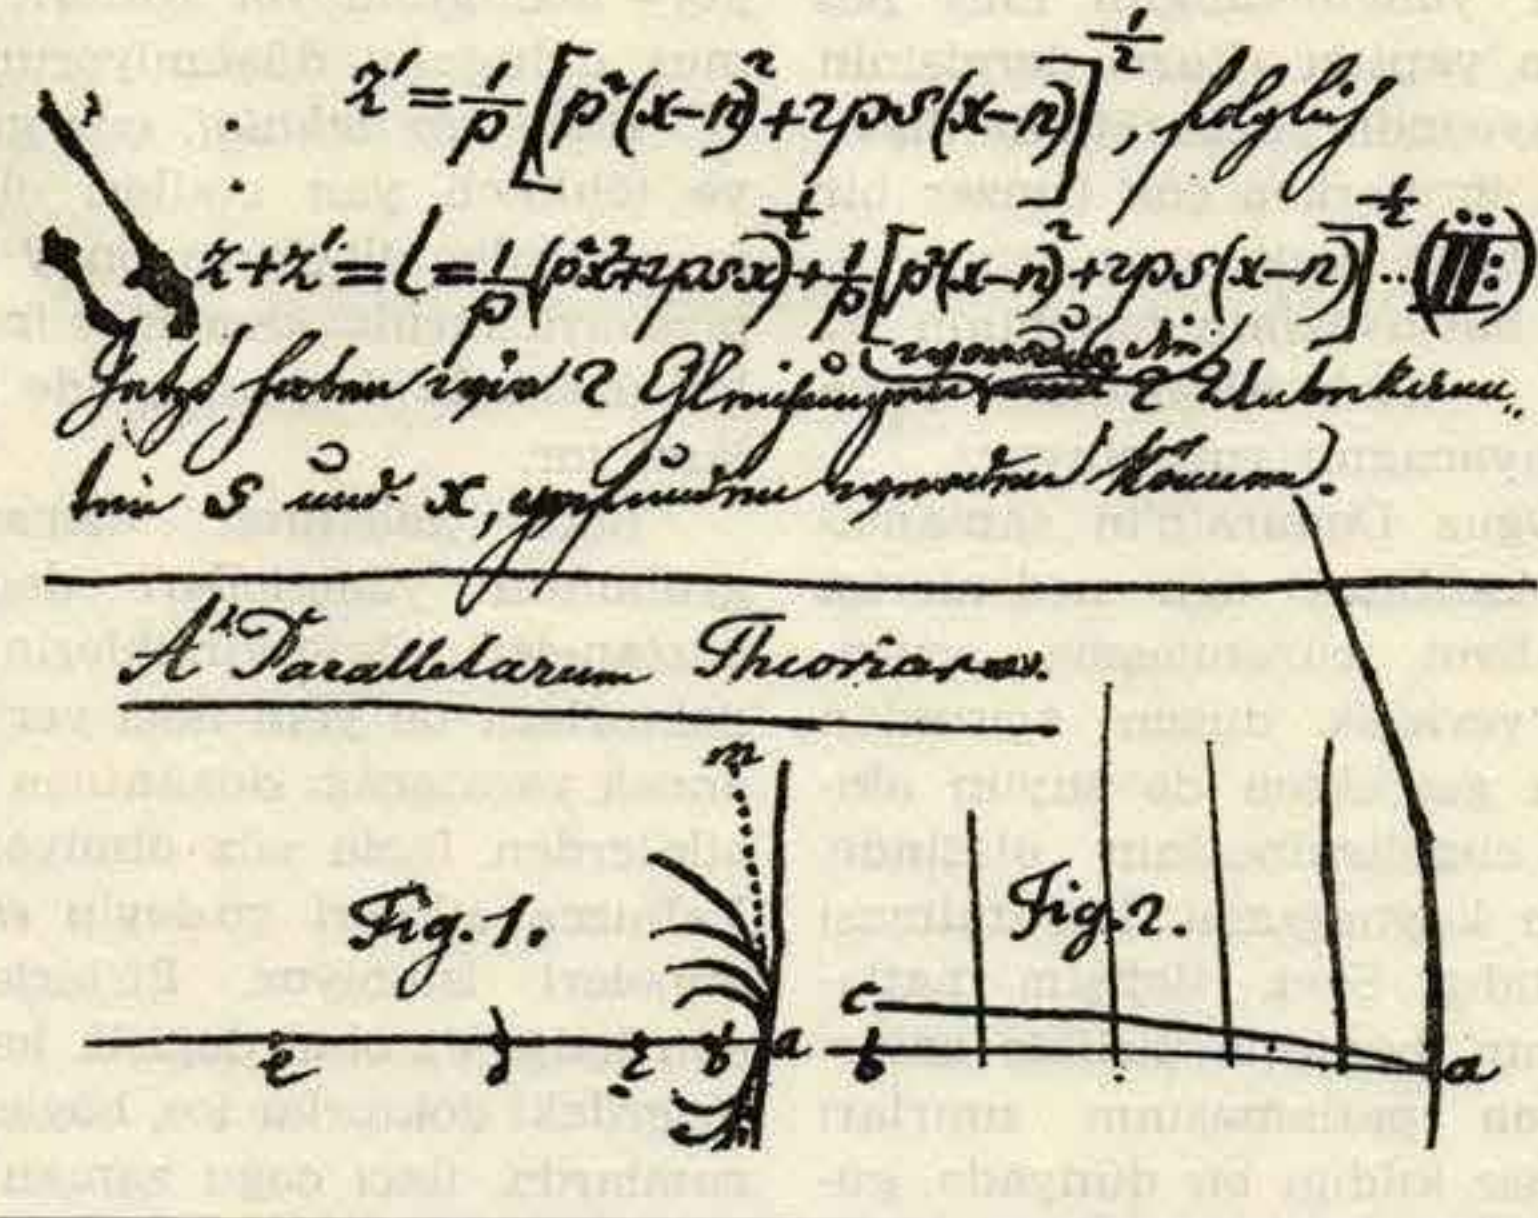 z' = 1/p [p²(x-n)² + 2ps(x-n)]^1/2, folglich
z+z' = l = 1/p (p²x²+2psx)^1/2 + 1/p [p²(x-n)² + 2ps(x-n)]^1/2 ..
Jetzt haben wir 2 Gleichungen 2 Unbekann„
ten s und x, gefunden werden können.
A' Parallelarum Theoriara
m
Fig. 1. Fig. 2.
c
e d c b a b a